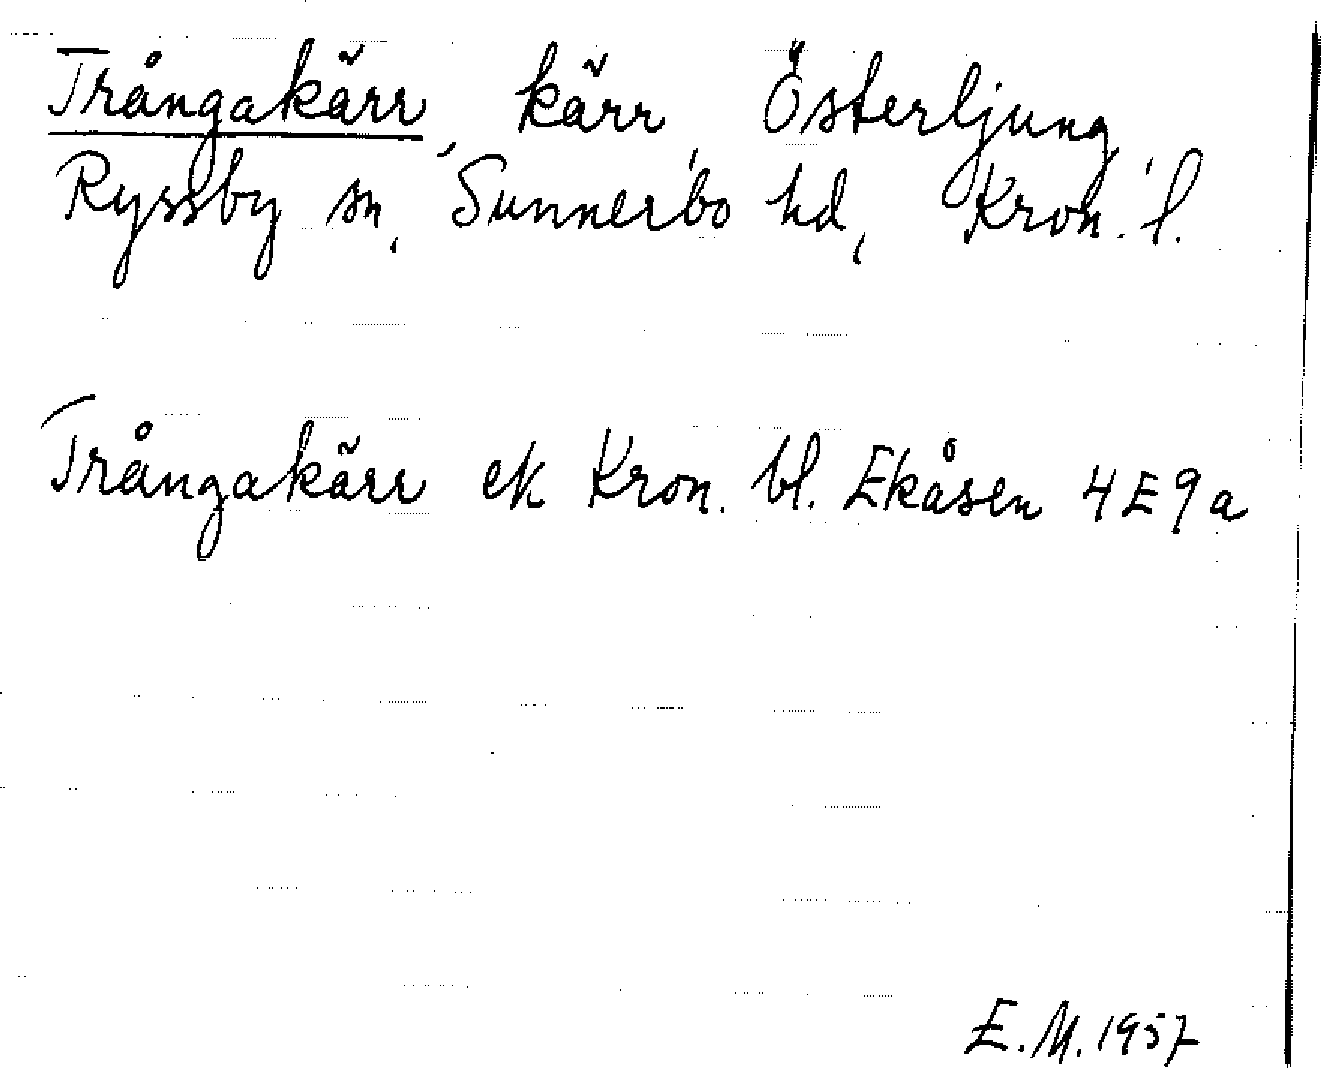 Trångakärr, kärr, Österljung,
Ryssby sn, Sunnerbo hd, Kron. l.
Trångakärr ek Kron. bl. Ekåsen 4E9a
E.M. 1957